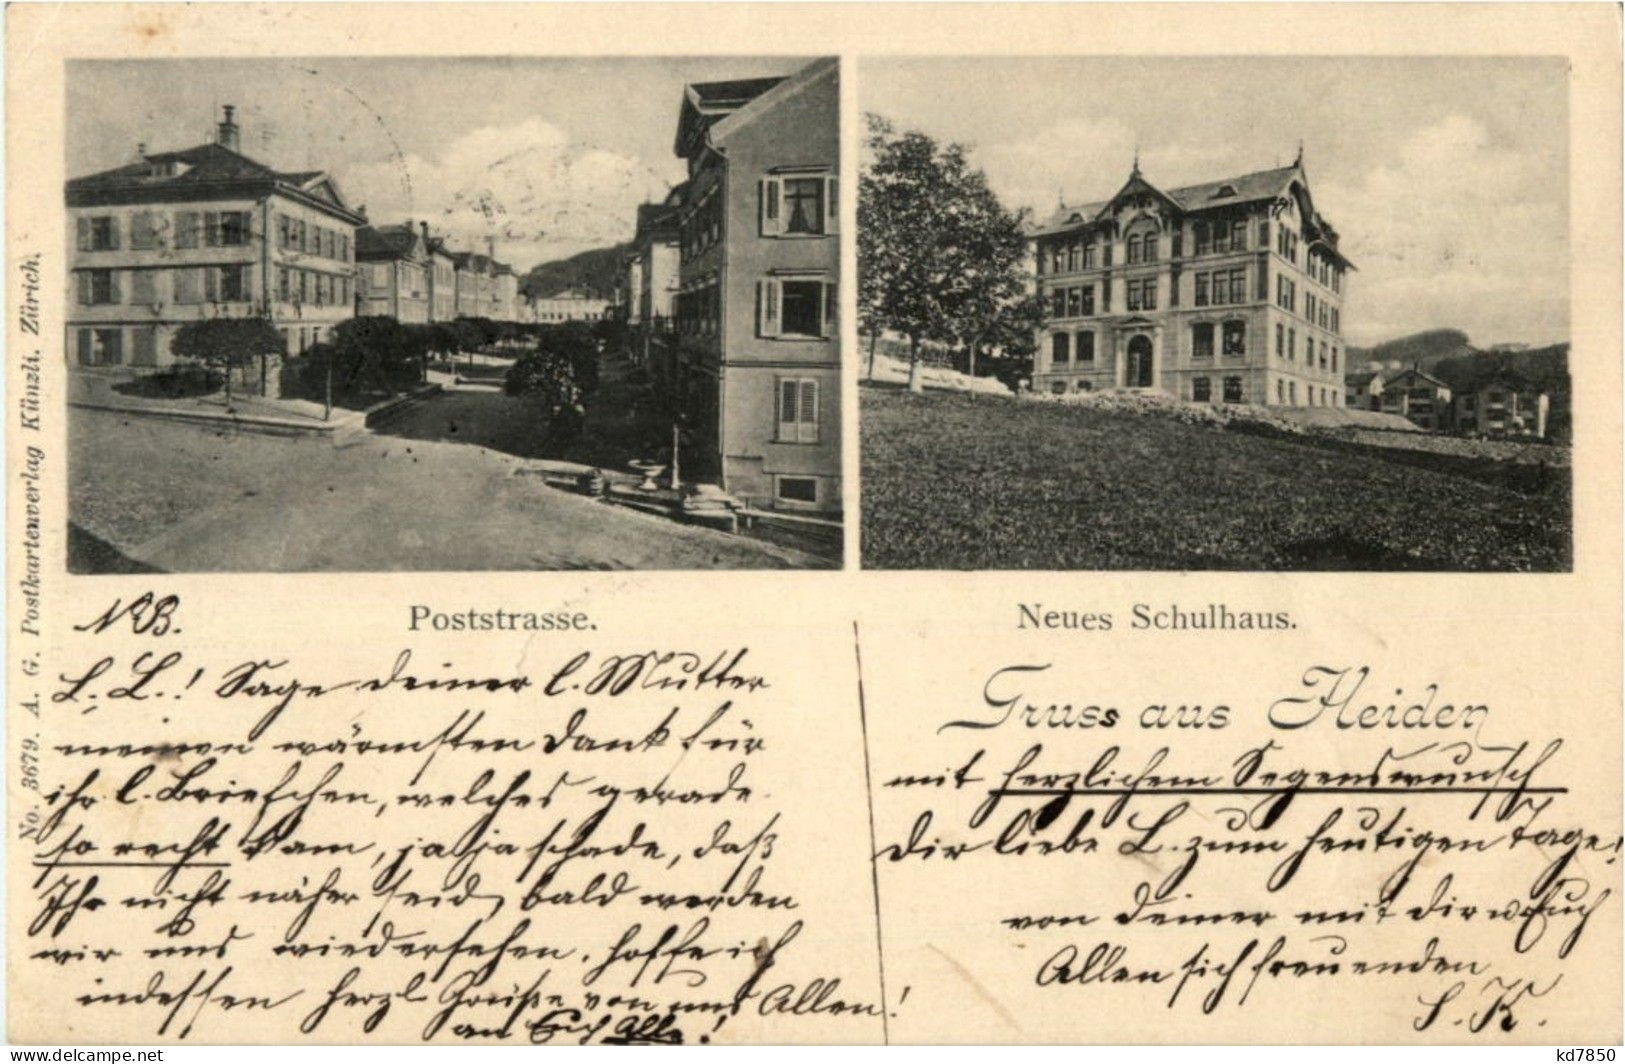 No. 3679. A. G. Postkartenverlag Künzli. Zürich.
Poststrasse.
Neues Schulhaus.
NB.
L. L.! Sage deiner l. Mutter
meinen wärmsten Dank für
ihr l. Briefchen, welches gerade
so recht kam, ja ja schade, daß
Ihr nicht näher seid, bald werden
wir uns wiedersehen, hoffe ich
indessen herzl Grüße von uns Allen!
an Euch Alle!
Gruss aus Heiden
mit herzlichem Segenswunsch
dir liebe L. zum heutigen Tage!
von deiner mit dir u Euch
Allen sich freuenden
S. K.
kd7850